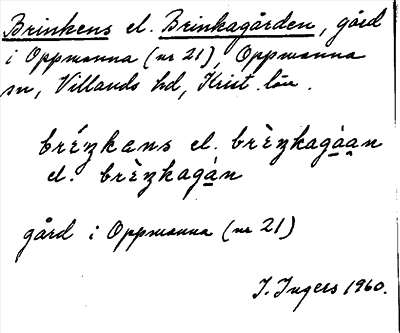 Brinkens el. Brinkagården, gård
i Oppmanna (nr 21), Oppmanna
sn, Villands hd, Krist. län.
bréŋkans el. brèŋkagå̀an
el. brèŋkagån
gård i Oppmanna (nr 21)
I. Ingers 1960.